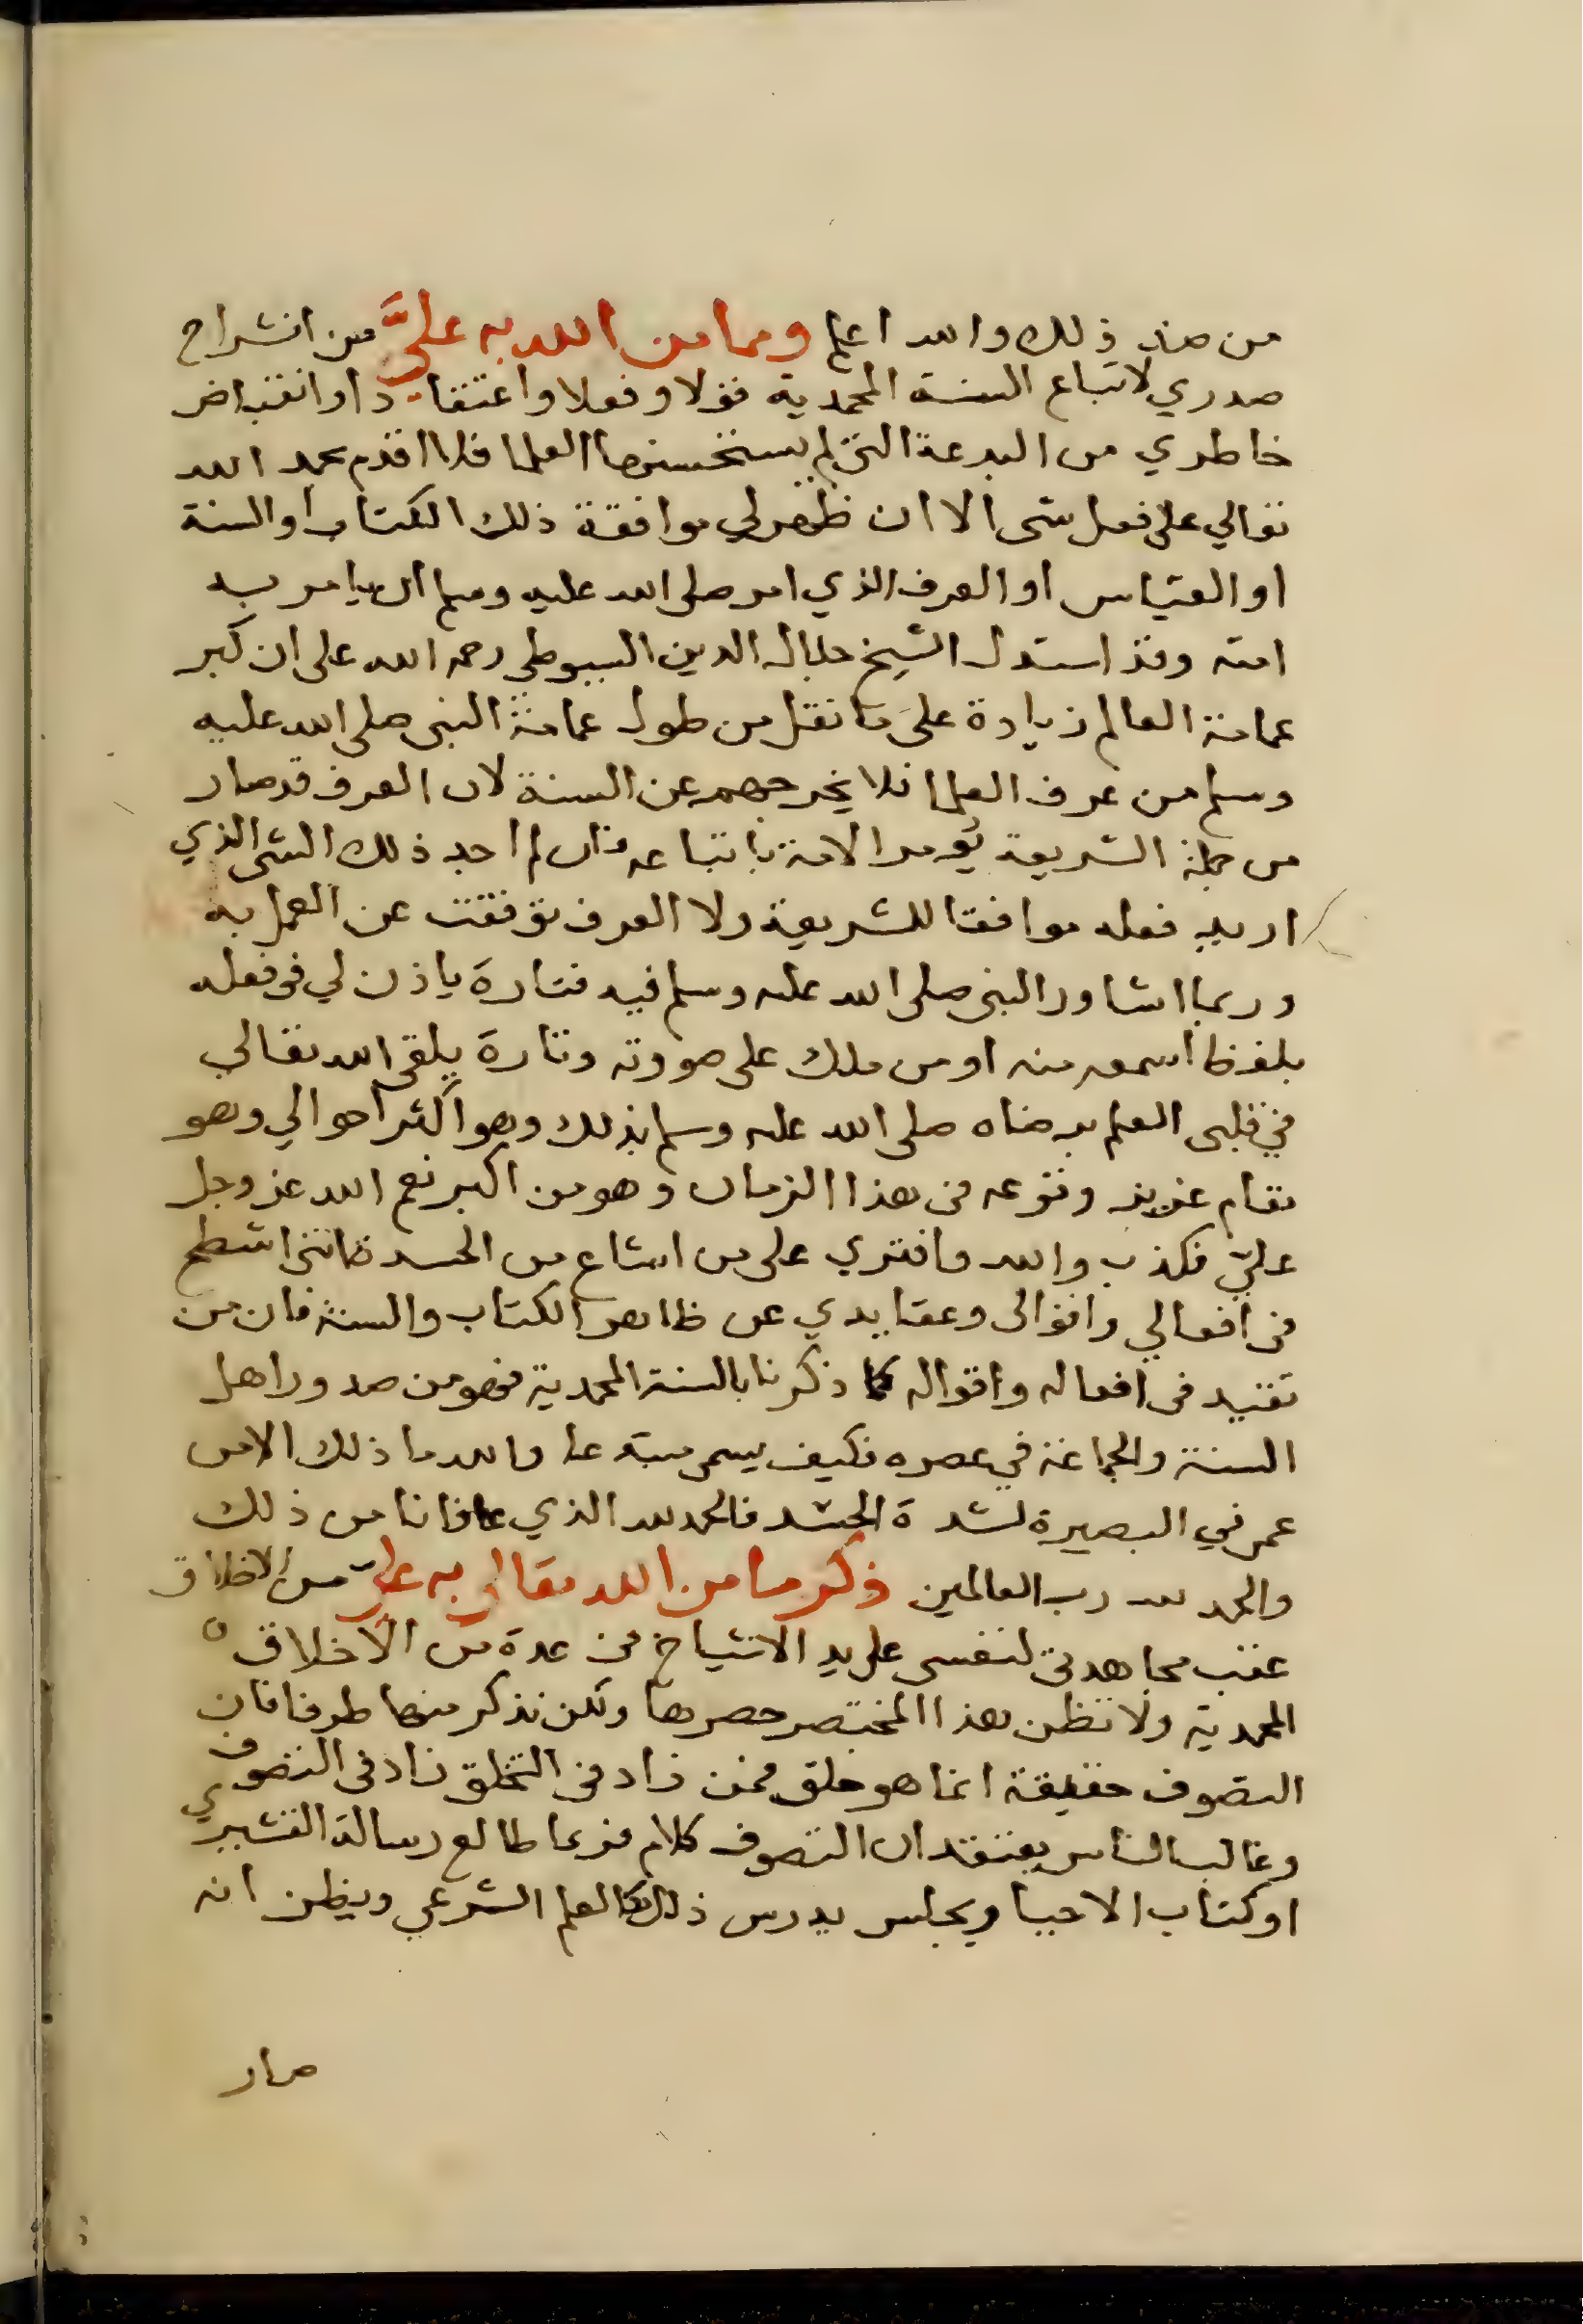 من ضد ذلك والله اعلم ومما من الله به عليَّ من انشراح
صدري لاتباع السنة المحمدية قولا وفعلا واعتقادا وانقباض
خاطري من البدعة التي لم يستحسنها العلما فلا اقدم بحمد الله
تعالي على فعل شى الا ان ظهر لي موافقة ذلك الكتاب او السنة
او القياس او العرف الذي امر صلى الله عليه وسلم ان يامر به
امته وقد استدل الشيخ جلال الدين السيوطى رحمه الله على ان كبر
عمامة العالم زيادة على ما نقل من طول عمامة النبى صلى الله عليه
وسلم من عرف العلما فلا يخرجهم عن السنة لان العرف قد صار
من جملة الشريعة يؤمر الامة باتباعه فان لم اجد ذلك الشى الذي
اريد فعله موافقا للشريعة ولا العرف توقفت عن العمل به
وربما اشاور النبى صلى الله عليه وسلم فيه فتارة ياذن لي في فعله
بلفظ اسمعه منه او من ملك على صورته وتارة يلقى الله تعالي
في قلبى العلم برضاه صلى الله عليه وسلم بذلك وهو اكثر احوالي وهو
مقام عزيز وقوعه في هذا الزمان وهو من اكبر نعم الله عز وجل
عليّ فكذب والله وافتري على من اشاع من الحسدة اننى اشطح
في افعالي واقوالى وعقايدي عن ظاهر الكتاب والسنة فان من
تقيد في افعاله واقواله كما ذكرنا بالسنة المحمدية فهو من صدور اهل
السنة والجماعة في عصره فكيف يسمى مبتدعا والله ما ذلك الا من
عمى في البصيرة لشدة الحسد فالحمد لله الذي عافانا من ذلك
والحمد لله رب العالمين ذكر ما من الله تعالى به علي من الاخلاق
عقب مجاهدتى لنفسى على يد الاشياخ من عدة من الاخلاق
المحمدية ولا تظن بهذا المختصر حصرها ولكن نذكر منها طرفا فان
التصوف حقيقة انما هو خلق فمن زاد في التخلق زاد في التصوف
وغالب الناس يعتقد ان التصوف كلام فربما طالع رسالة القشيري
او كتاب الاحيا ويجلس يدرس ذلك كالعلم الشرعي ويظن انه
صار